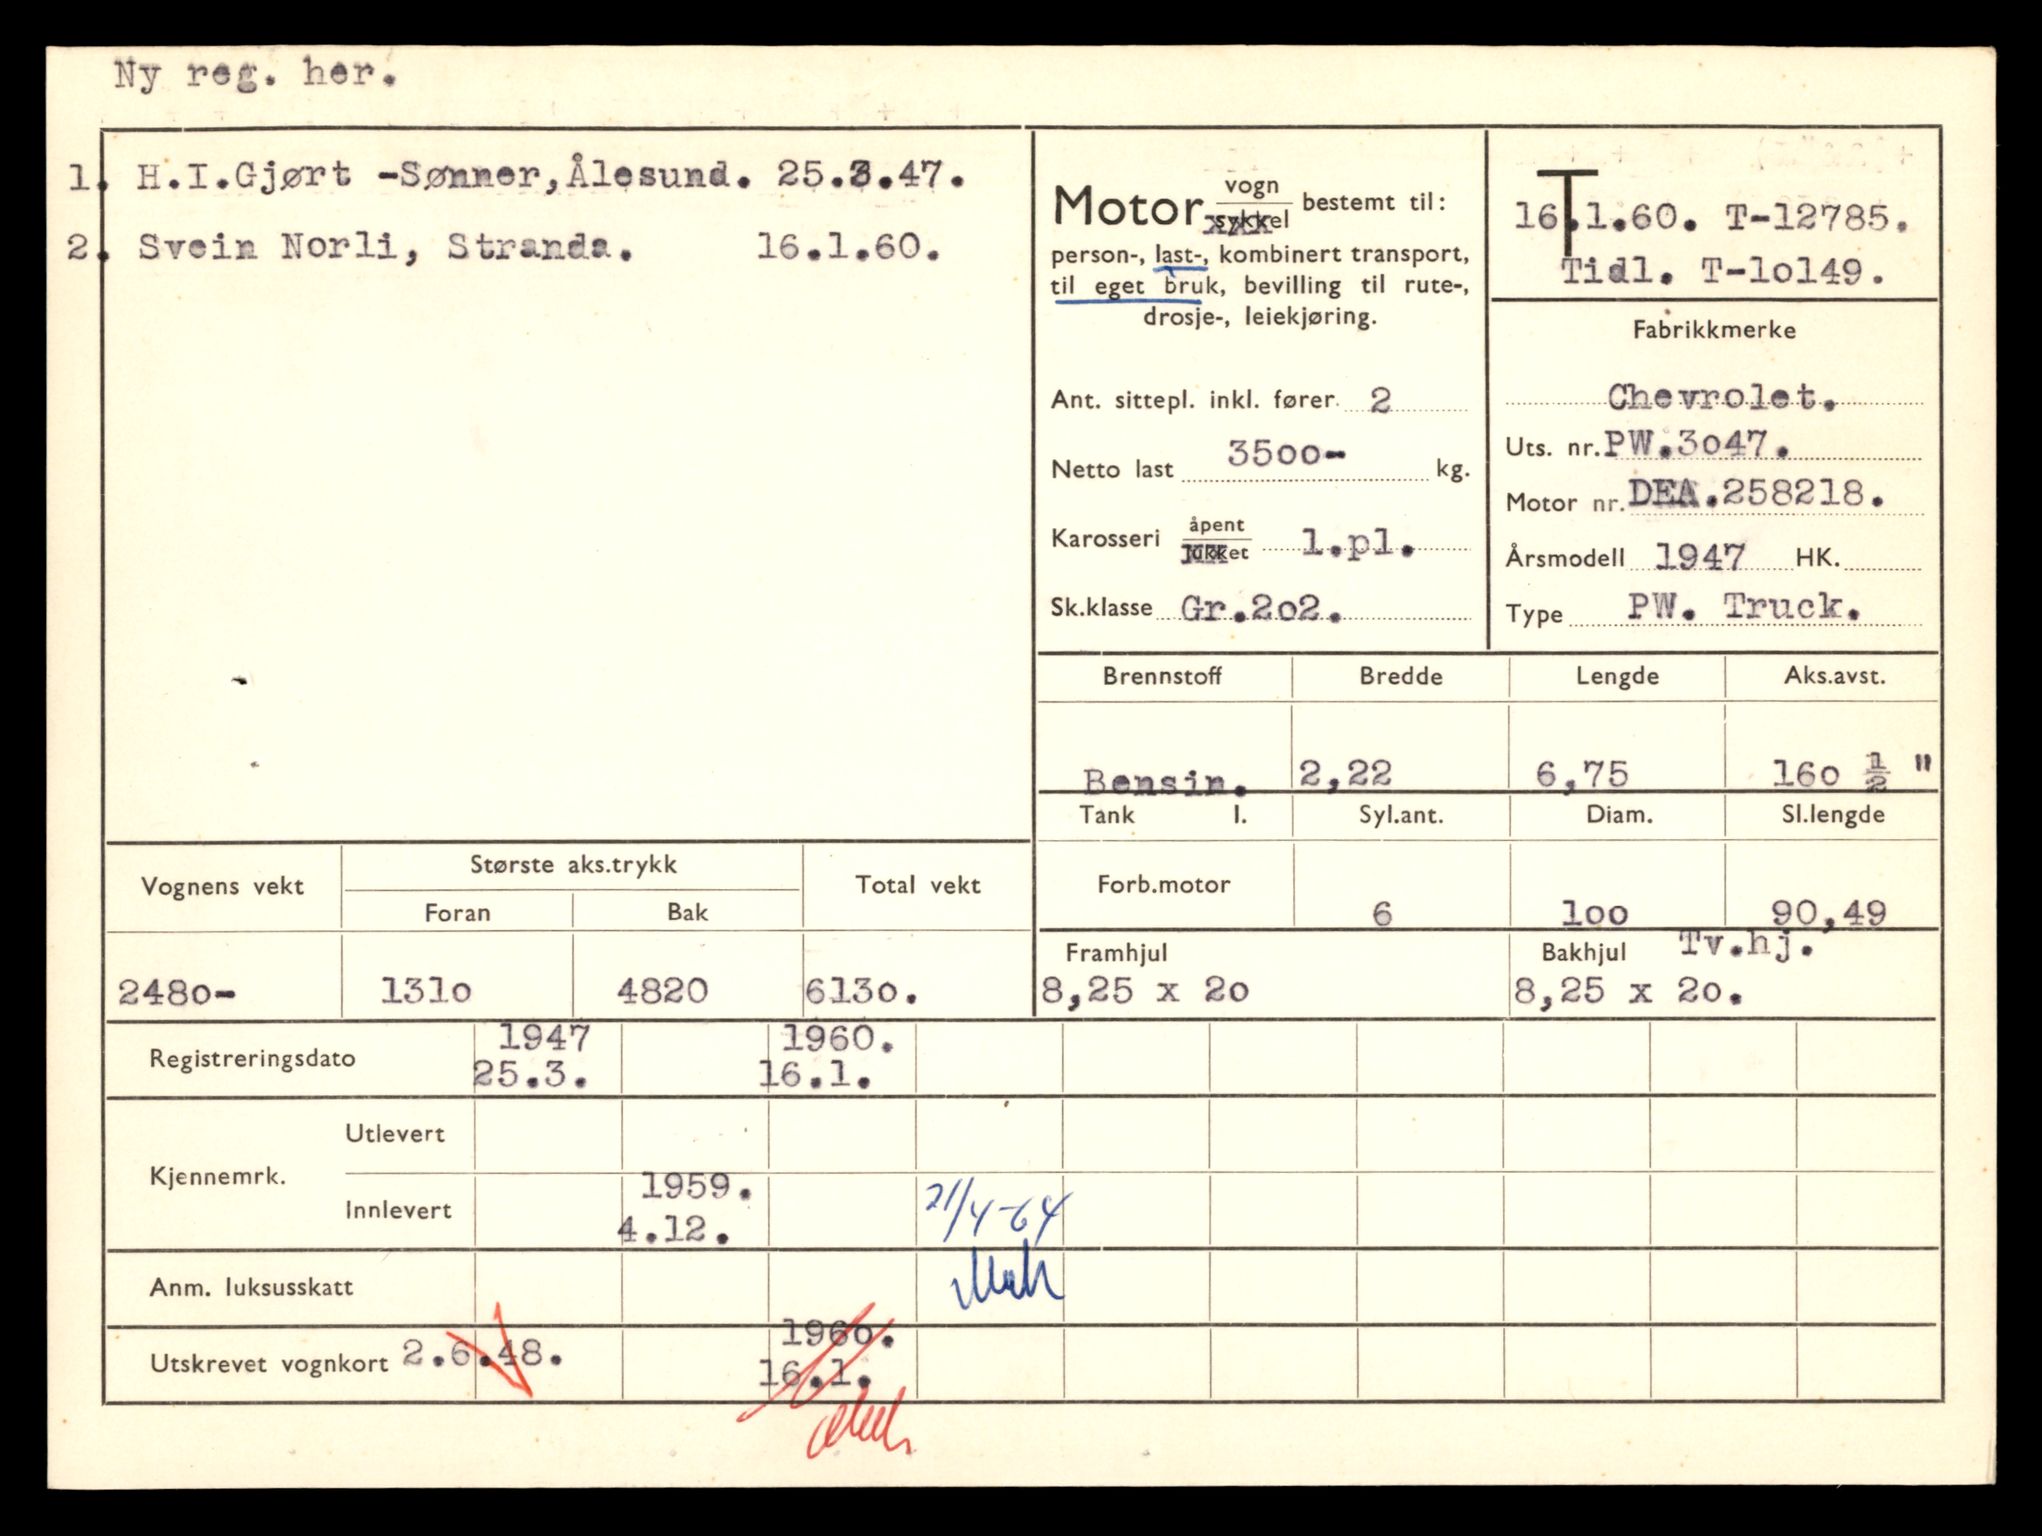 Ny reg. her.
1. H.I.Gjørt -Sønner, Ålesund. 25.3.47.
2. Svein Norli, Stranda. 16.1.60.
Motor vogn
sykkel bestemt til:
person-, last-, kombinert transport,
til eget bruk, bevilling til rute-,
drosje-, leiekjøring.
Ant. sittepl. inkl. fører 2
Netto last 3500- kg.
Karosseri åpent
lukket 1.pl.
Sk.klasse Gr.2o2.
T
16.1.60. T-12785.
Tidl. T-1o149.
Fabrikkmerke
Chevrolet.
Uts. nr. PW.3o47.
Motor nr. DEA.258218.
Årsmodell 1947 HK.
Type PW. Truck.
Brennstoff Bredde Lengde Aks.avst.
Bensin. 2,22 6,75 16o 1/2 "
Tank l. Syl.ant. Diam. Sl.lengde
Forb.motor 6 1oo 90,49
Framhjul Bakhjul Tv.hj.
8,25 x 2o 8,25 x 2o.
Vognens vekt Største aks.trykk Total vekt
Foran Bak
248o- 131o 4820 613o.
Registreringsdato 1947 1960.
25.3. 16.1.
Kjennemrk. Utlevert
Innlevert 1959. 21/4-64
4.12.
Anm. luksusskatt
Utskrevet vognkort 2.6.48. 196o.
16.1.